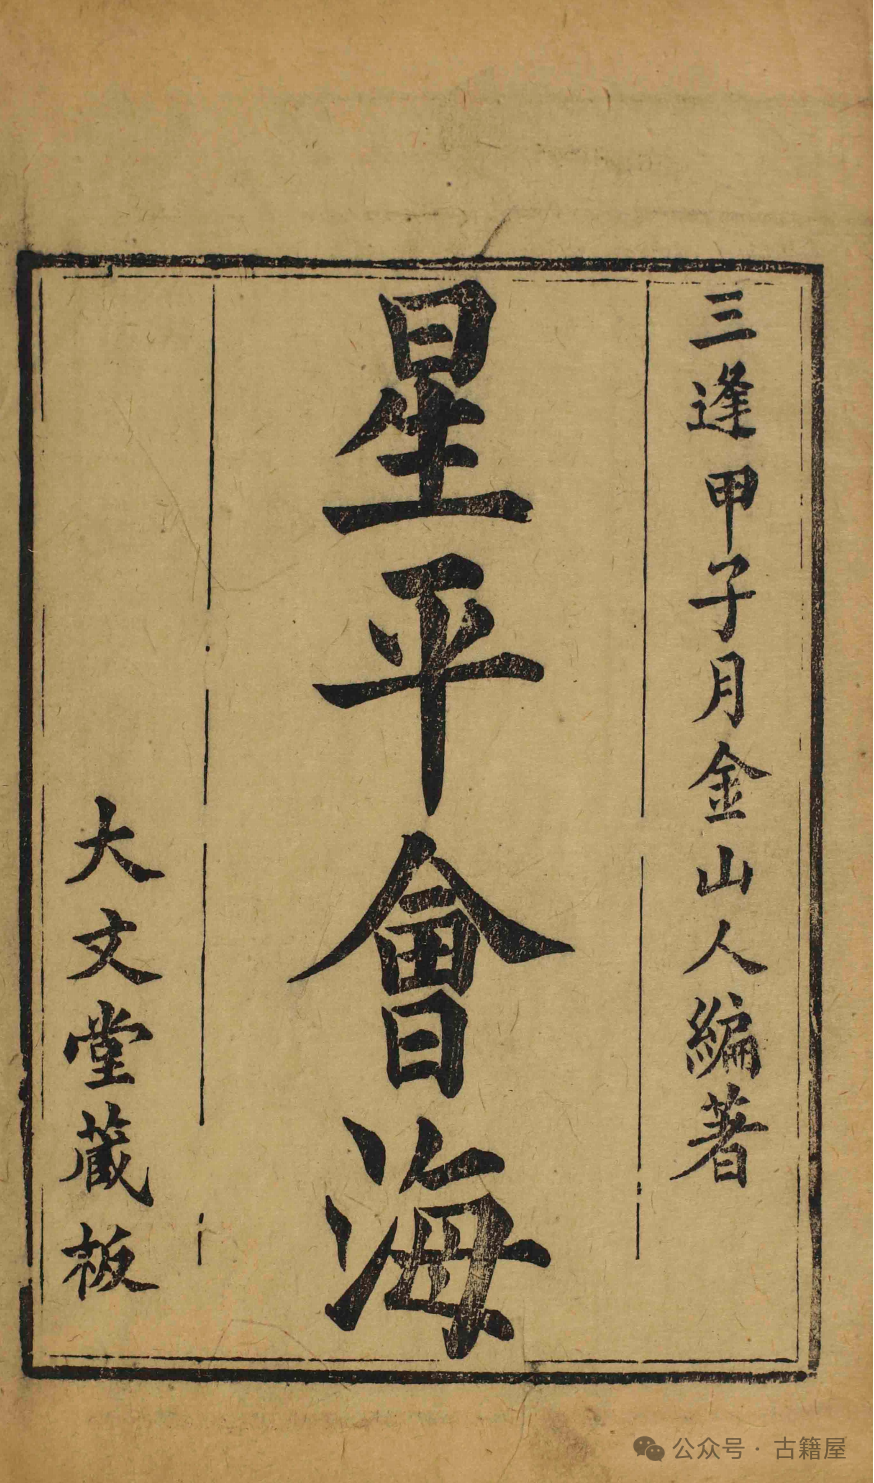 三逢甲子月金山人編著
星平會海
大文堂藏板
公众号·古籍屋